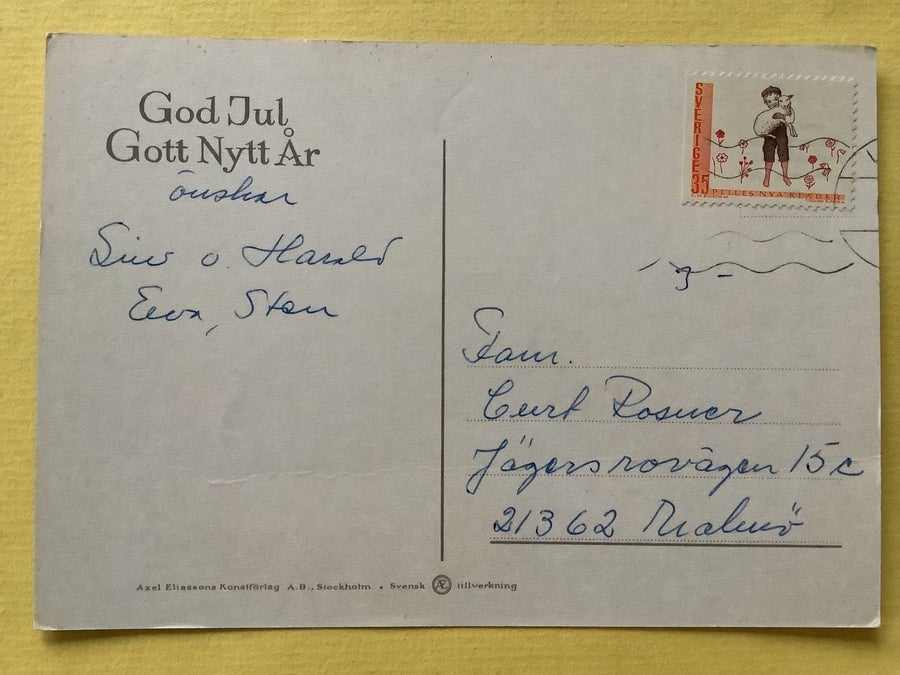 God Jul
Gott Nytt År
önskar
Siw o. Harald
Ewa, Sten
SVERIGE 35
PELLES NYA KLÄDER
3 -
Fam.
Curt Rosner
Jägersrovägen 15c
21362 Malmö
Axel Eliassons Konstförlag A.B., Stockholm • Svensk Æ tillverkning